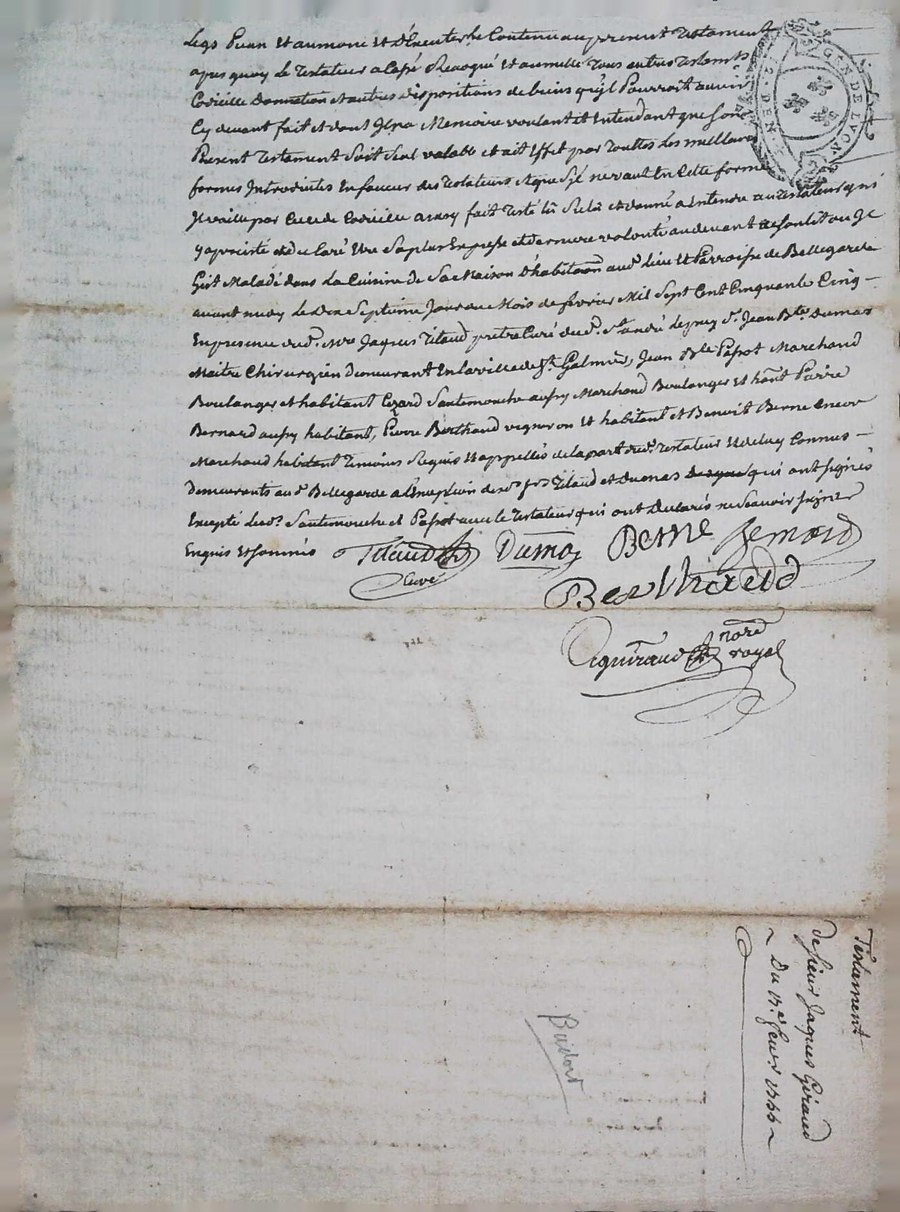 Legs et aumone et d'Executer le Contenu au present Testament
apres quoy Le Testateur a Cassé Revoqué et annullé Tous autres Testamts
Codicille Donnation et autres Dispositions de biens qu'jl Pourroit avoir
Cy devant fait et dont Jl na Memoire voulant et Entendant que son
Present Testament Soit Seul valable et ait Effet par Touttes Les meilleures
formes Introduites En faveur des Testateurs et que S'jl ne vaut En Cette forme
Jl vaille par Celle de Codicille a moy fait Testé lû Relû et donné a Entendre au Testateur qui
y a persisté et declaré Etre Sa plus Expresse et derniere volonté au devant
Gist Malade dans La Cuisine de Sa Maison d'habitaôn aud. Lieu et Parroisse de Bellegarde
avant midy Le Dix Septieme Jour du Mois de fevrier Mil Sept Cent Cinquante Cinq
En presence de Mre Jaques Titaud pretre Curé dud. St. andré Sr. Jean Bte. Dumas
Maitre Chirurgien Demeurant En la ville de St. Galmier, Jean Bte Papot Marchand
Boulanger et habitant Santimouche aussy Marchand Boulanger et habt. Pierre
Bernard aussy habitant, Pierre Berthaud vigneron et habitant et Benoit Berne Encor
Marchand habitant Temoins Requis et appellés de la part dud. Testateur et de luy Connus
Demeurants aud. Bellegarde a L'Exception desd. Srs Titaud et Dumas qui ont signés
Excepté Led. Santimouche et Papot avec le Testateur qui ont Declarés ne Scavoir signer
Enquis et Sommés Titaud Dumas Berne Bernard
Curé
Berthaud
nore
royal
GEN DE LYON
2 DEN
Testament
de Sieur Jaques Giraud
Du 17e fevr. 1755